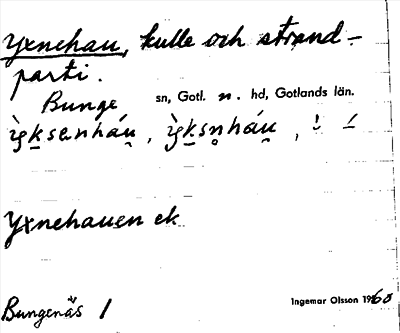 Yxnehau, kulle och strand-
parti.
Bunge sn, Gotl. n. hd, Gotlands län.
Yxnehauen ek
Bungenäs 1
Ingemar Olsson 1960